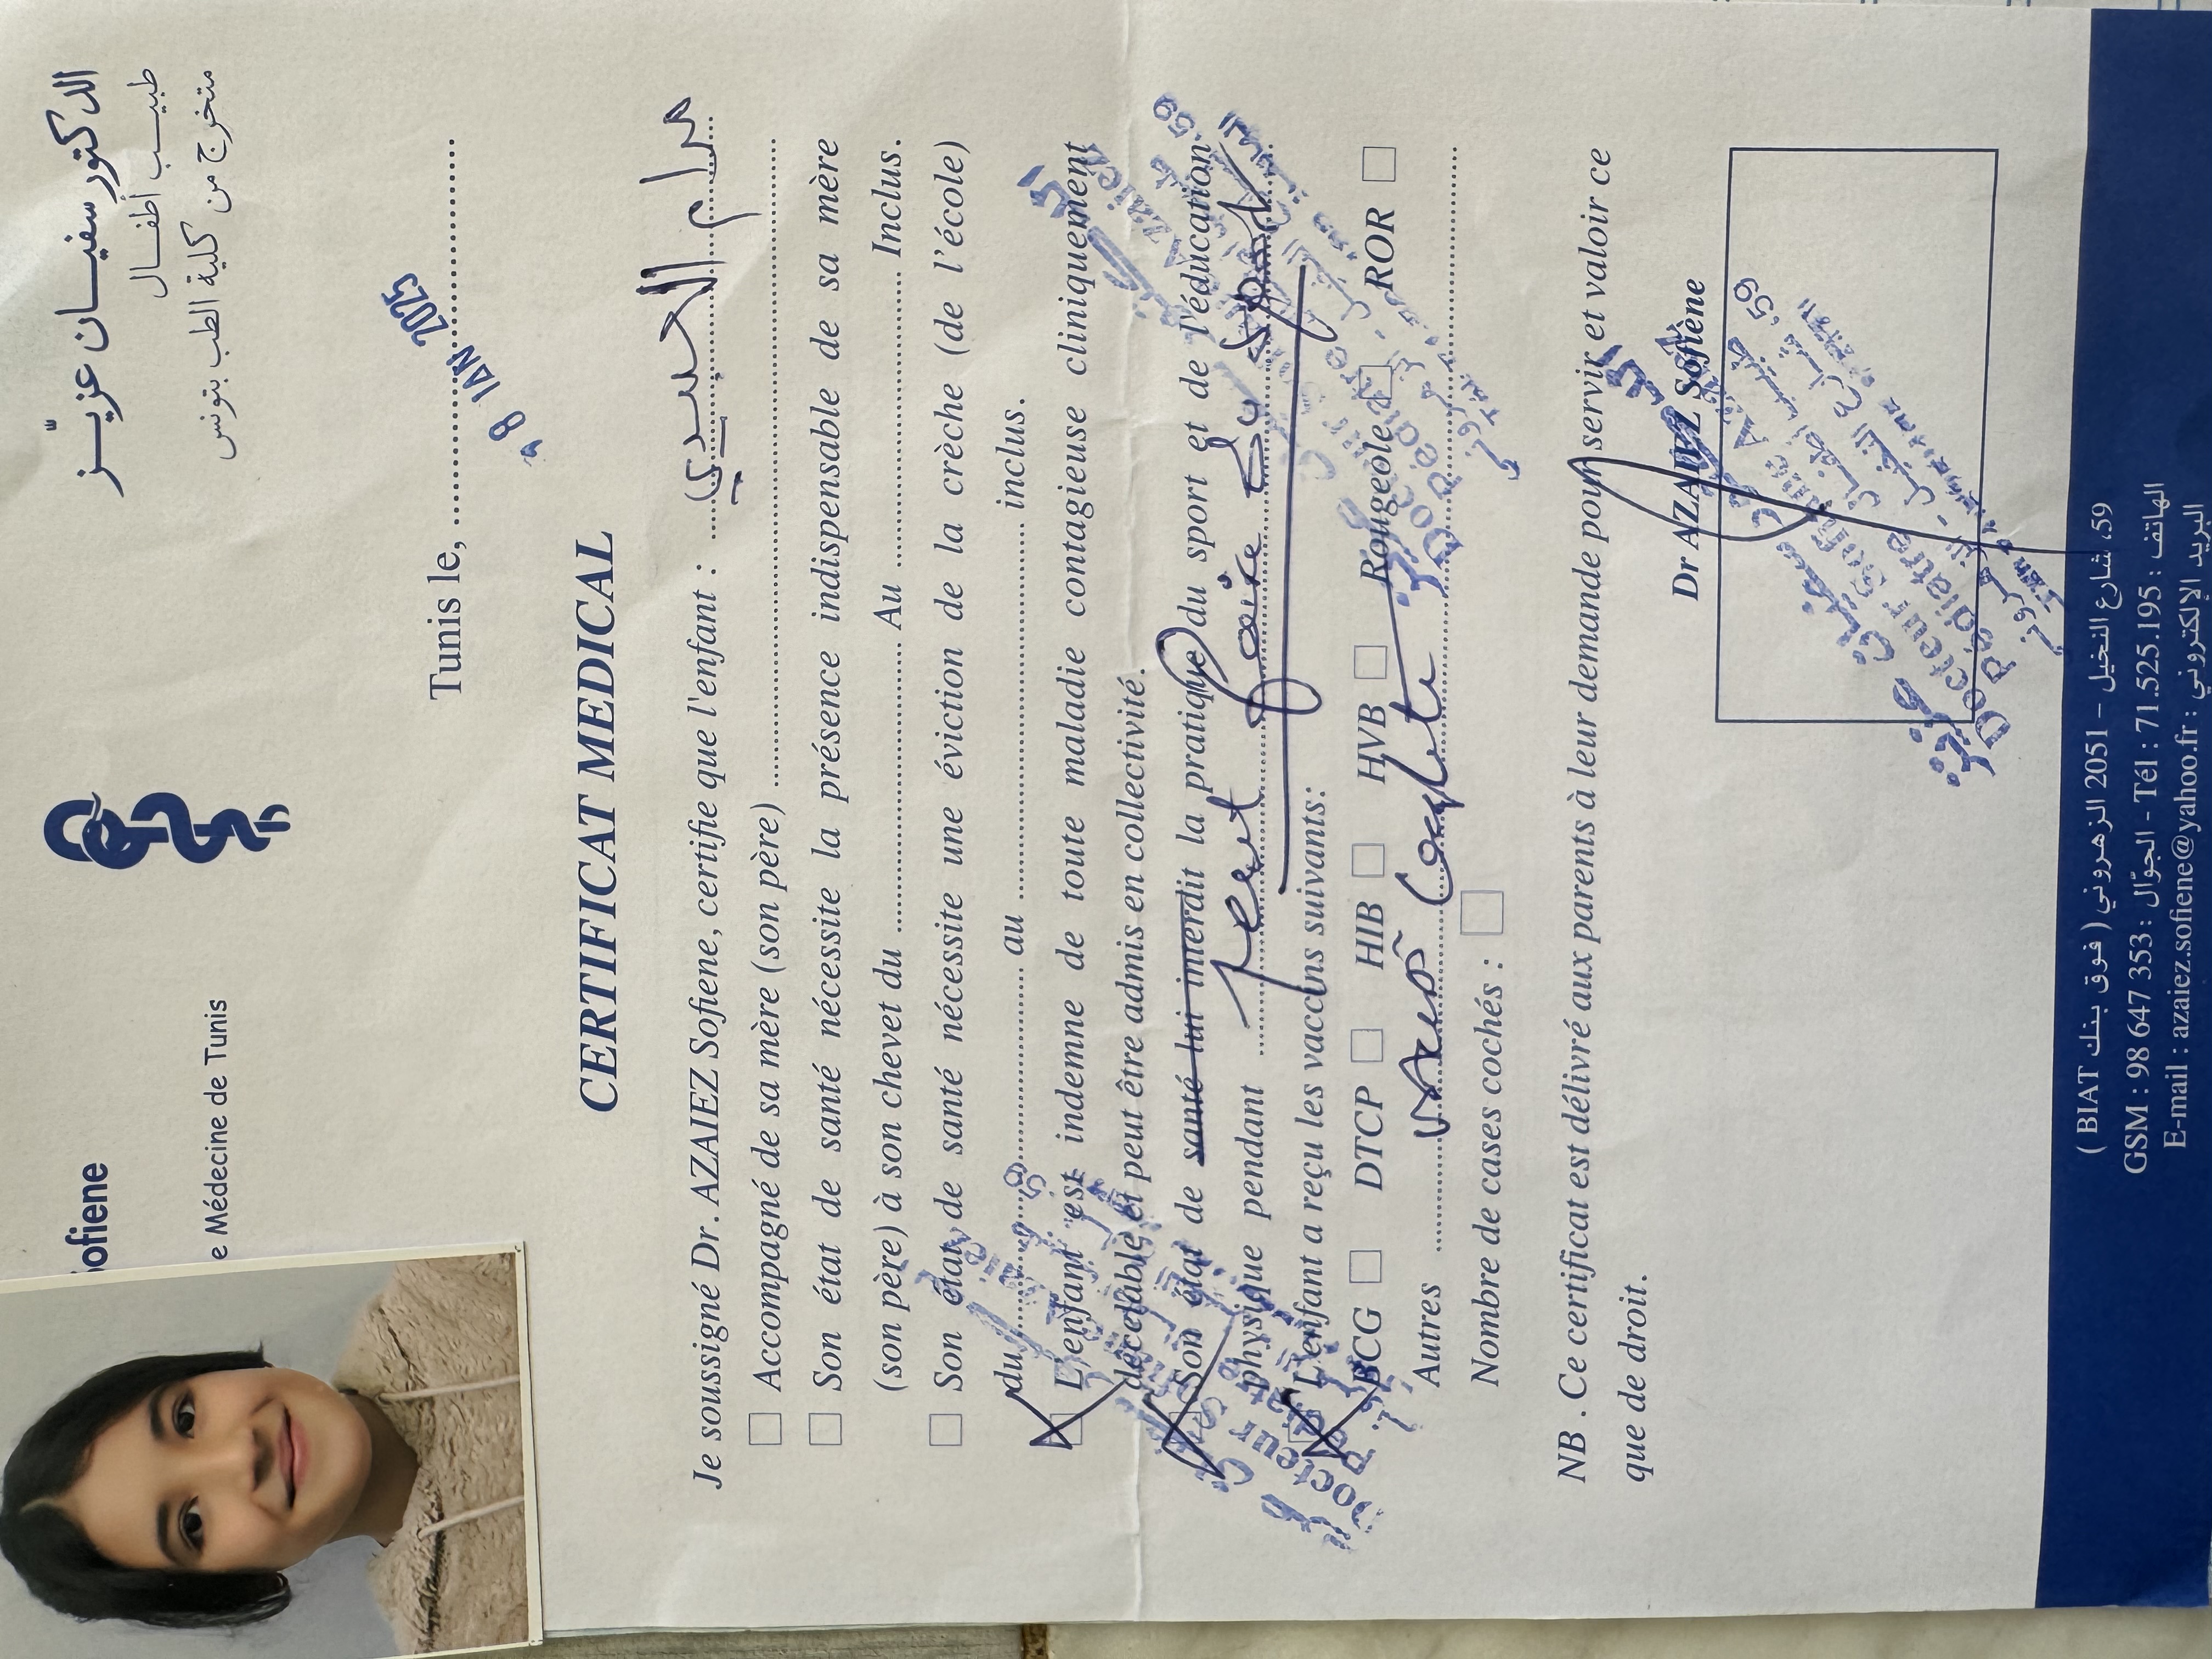 ofiene
e Médecine de Tunis
الدكتور سفيـــان عزيّــز
طبيــب أطفــال
متخرج من كلية الطب بتونس
Tunis le, ........................
8 JAN 2025
CERTIFICAT MEDICAL
Je soussigné Dr. AZAIEZ Sofiene, certifie que l'enfant : مرام
Accompagné de sa mère (son père) ........................
Son état de santé nécessite la présence indispensable de sa mère
(son père) à son chevet du ........................ Au ........................ Inclus.
Son état de santé nécessite une éviction de la crèche (de l'école)
du ........................ au ........................ inclus.
L'enfant est indemne de toute maladie contagieuse cliniquement
décelable et peut être admis en collectivité.
Son état de santé lui interdit la pratique du sport et de l'éducation
physique pendant peut faire du sport
L'enfant a reçu les vaccins suivants:
BCG □ DTCP □ HIB □ HVB □ Rougeole □ ROR □
Autres ........................
Nombre de cases cochés : □
NB . Ce certificat est délivré aux parents à leur demande pour servir et valoir ce
que de droit.
Dr AZAIEZ Sofiène
Docteur Sofiène Azaiez
Pédiatre
59، شارع النخيل – 2051 الزهروني ( فوق بنك BIAT )
GSM : 98 647 353 : الجوّال - Tél : 71.525.195 : الهاتف
E-mail : azaiez.sofiene@yahoo.fr : البريد الإلكتروني